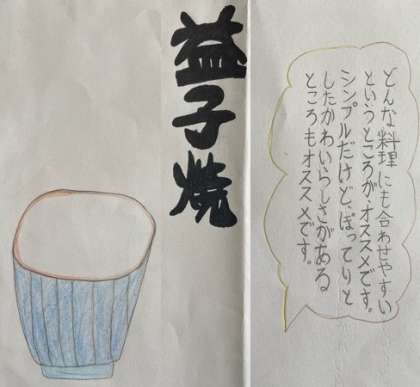 益子焼
どんな料理にも合わせやすい
というところが、オススメです。
シンプルだけど、ぽってりと
したかわいらしさがある
ところもオススメです。